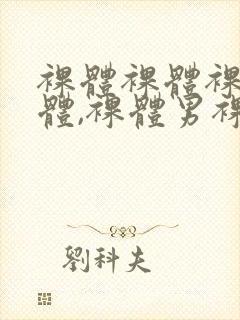 裸體裸體裸
體,裸體男裸
劉科夫